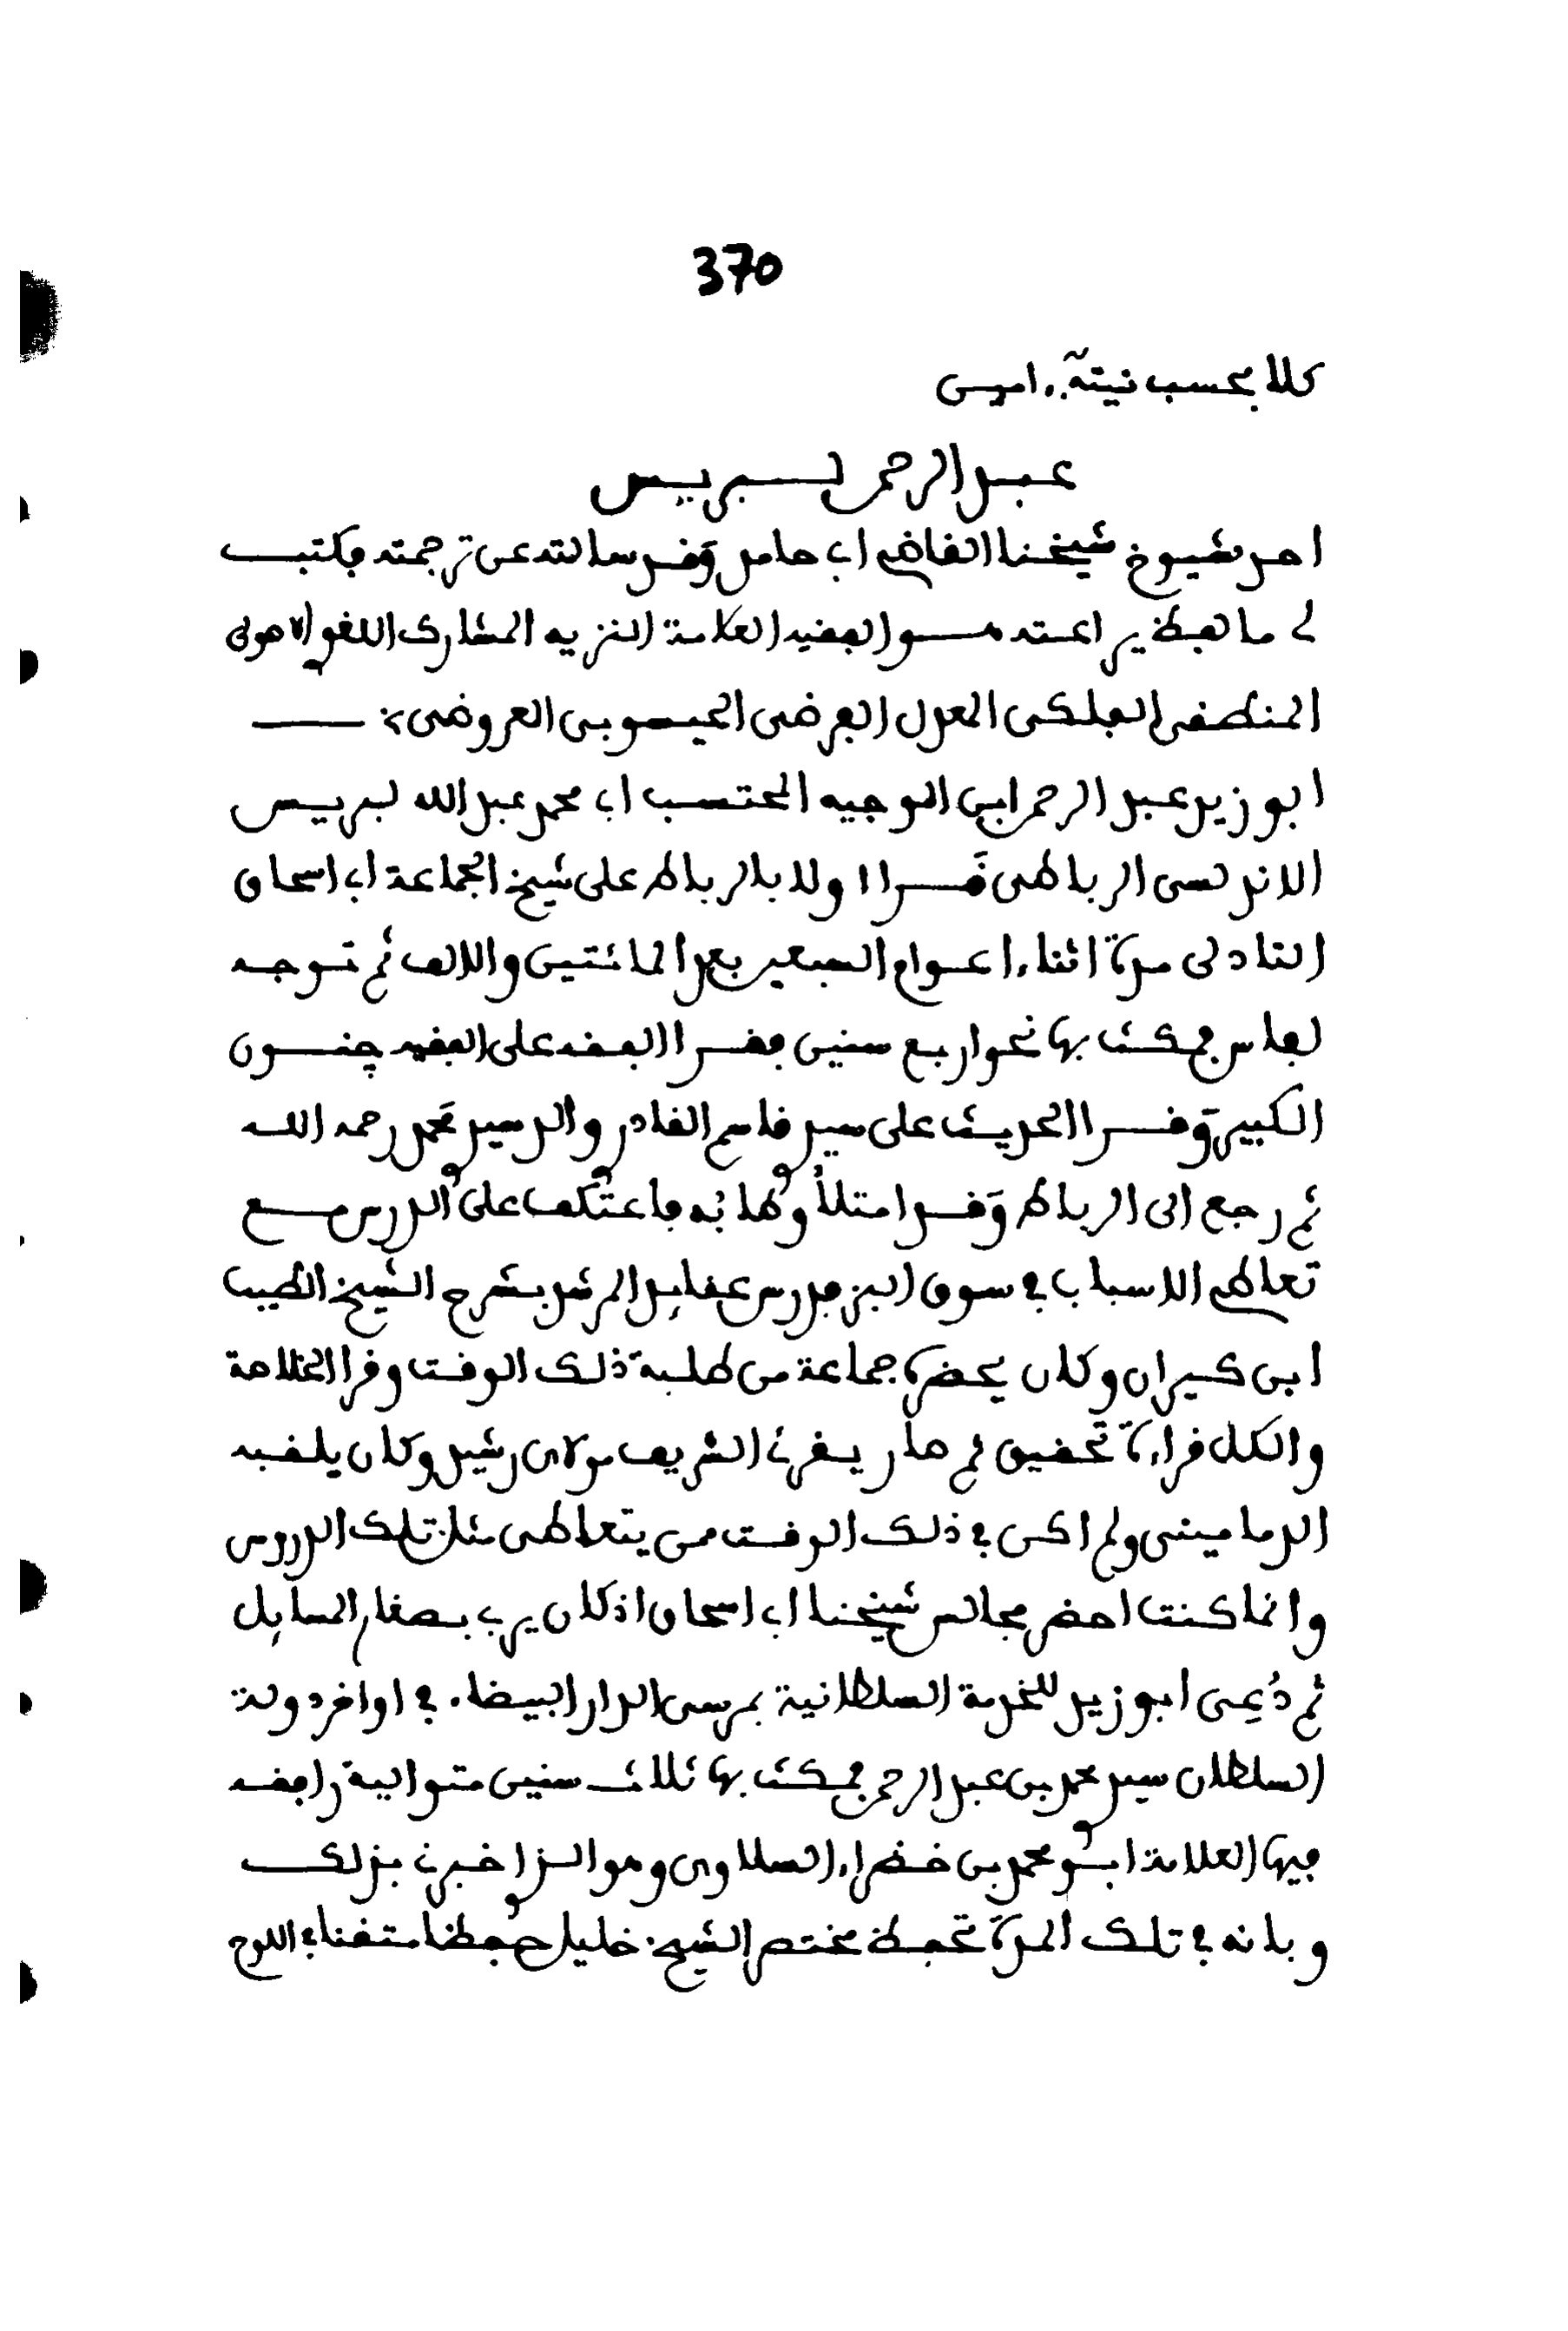 370
كلا بحسب نيته.، امين
عبد الرحمن لبريس
احد شيوخ شيخنا القاضي ابي حامد وقد سالته عن ترجمته فكتب
لي ما لفظه ير اعنته هو الفقيه العلامة النزيه المشارك اللغوي الاصولي
المنطقي الفلكي المعدل الفرضي الحيسوبي العروضي
ابو زيد عبد الرحمن ابن الوجيه المحتسب ابي محمد عبد الله لبريس
الاندلسي الرباطي قرا اولا بالرباط على شيخ الجماعة ابي اسحاق
التادلي مدة اثناء اعوام السبعين بعد المائتين والالف ثم توجه
لفاس فمكث بها نحو اربع سنين فقرا الفقه على الفقيه جنون
الكبير وقرا الحديث على سيدي قاسم القادري والد سيدي محمد رحمه الله
ثم رجع الى الرباط وقد امتلأ وطابه فاعتكف على الدرس مع
تعاطي الاسباب في سوق البز فدرس عقايد المرشد بشرح الشيخ الطيب
ابن كيران وكان يحضره جماعة من طلبة ذلك الوقت وقرا الخلاصة
والكل قراءة تحقيق ثم صار يقرئ الشريف مولاي رشيد وكان يلقبه
الدماميني ولم اكن في ذلك الوقت ممن يتعاطى مثل تلك الدروس
وانما كنت احضر مجالس شيخنا ابي اسحاق اذ كان يربي بصغار المسايل
ثم دُعِي ابو زيد للخدمة السلطانية بمرسى الدار البيضاء في اواخر دولة
السلطان سيدي محمد بن عبد الرحمن فمكث بها ثلاث سنين متوالية رافقه
فيها العلامة ابو محمد بن خضراء السلاوي وهو الذي اخبرني بذلك
وبانه في تلك المدة تحفظ مختصر الشيخ خليل حفظا متقنا في اللوح